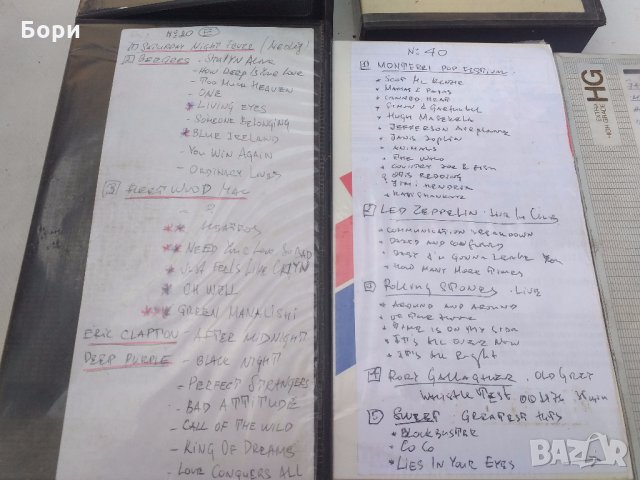 Бори
№ 20 E
1 SATURDAY NIGHT FEVER (Medley)
2 BEE GEES - STAYIN ALIVE
- HOW DEEP IS YOUR LOVE
- TOO MUCH HEAVEN
- ONE
* LIVING EYES
- SOMEONE BELONGING
* BLUE IRELAND
- YOU WIN AGAIN
- ORDINARY LIVES
3 FLEETWOOD MAC
- ?
** ALBATROS
** NEED YOUR LOVE SO BAD
* JUST FEELS LIKE
* OH WELL
*** GREEN MANALISHI
ERIC CLAPTON - AFTER MIDNIGHT
DEEP PURPLE - BLACK NIGHT
- PERFECT STRANGERS
- BAD ATTITUDE
- CALL OF THE WILD
- RING OF DREAMS
- LOVE CONQUERS ALL
№ 40
1 MONTEREI POP FESTIVAL
* SCOT MC KENZIE
* MAMAS & PAPAS
* CANNED HEAT
* SIMON & GARFUNKEL
* HUGH MASEKELA
* JEFFERSON AIRPLANE
* JANIS JOPLIN
* ANIMALS
* THE WHO
* COUNTRY JOE & FISH
* OTIS REDDING
* JIMI HENDRIX
* RAVI SHANKAR
2 LED ZEPPELIN
* COMMUNICATION BREAKDOWN
* DAZED AND CONFUSED
* BABY I'M GONNA LEAVE YOU
* HOW MANY MORE TIMES
3 ROLLING STONES - LIVE
* AROUND AND AROUND
* TIME IS ON MY SIDE
* IT'S ALL OVER NOW
* IT'S ALL RIGHT
4 RORY GALLAGHER - OLD GREY
WHISTLE TEST
5 SWEET - GREATEST HITS
* BLOCKBUSTER
* CO CO
* LIES IN YOUR EYES
HG
HIGH GRADE
BAZAR